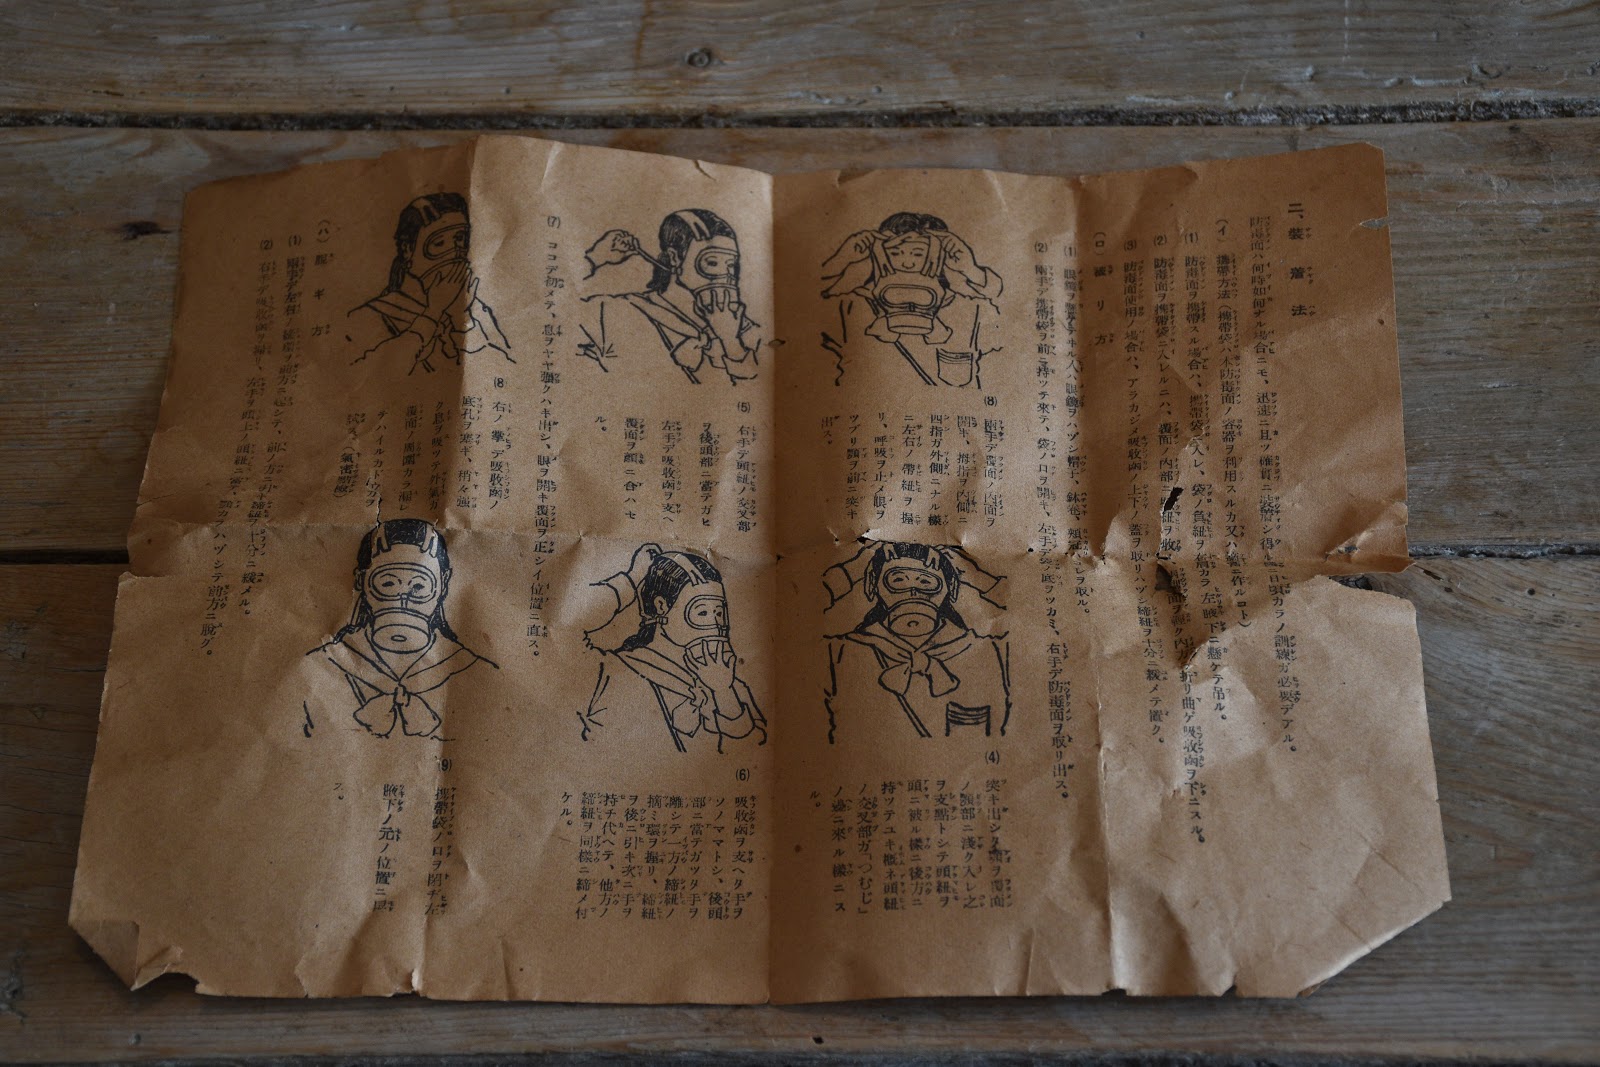 二、裝着法
防毒面ハ何時如何ナル場合ニモ、迅速ニ且ツ確實ニ裝着シ得ル
日頃カラノ訓練ガ必要デアル。
(イ) 携帶方法(携帶袋ハ本防毒面ノ容器ヲ利用スルカ又ハ
ニ作ルコト)
(1) 防毒面ヲ携帶スル場合ハ、携帶袋ニ入レ、袋ノ負紐ヲ肩カラ左腋下ニ懸ケテ吊ル。
(2) 防毒面ヲ携帶袋ニ入レルニハ、覆面ノ内部ニ
紐ヲ收
折リ曲ゲ吸收函ヲ下ニスル。
(3) 防毒面使用ノ場合ハ、アラカジメ吸收函ノ上下ノ蓋ヲ取リハヅシ締紐ヲ十分ニ緩メテ置ク。
(ロ) 被リ方
(1) 眼鏡ヲ掛ケテヰル人ハ眼鏡ヲハヅシ帽子、
ヲ取ル。
(2) 兩手デ携帶袋ヲ前ニ持ツテ來テ、袋ノ口ヲ開キ、左手デ袋ノ底ヲツカミ、右手デ防毒面ヲ取リ出ス。
(3) 兩手デ覆面ノ内面ヲ
開キ、拇指ヲ内側ニ
四指ガ外側ニナル樣
ニ左右ノ帶紐ヲ握
リ、呼吸ヲ止メ眼ヲ
ツブリ顎ヲ前ニ突キ
出ス。
(4) 突キ出シタ顎ヲ覆面
ノ顎部ニ淺ク入レ之
ヲ支點トシテ頭紐ヲ
頭ニ被ル樣ニ後方ニ
持ツテユキ概ネ頭紐
ノ交叉部ガ「つむじ」
ノ邊ニ來ル樣ニス
ル。
(5) 右手デ頭紐ノ交叉部
ヲ後頭部ニ當テガヒ
左手デ吸收函ヲ支ヘ
覆面ヲ顔ニ合ハセ
ル。
(6) 吸收函ヲ支ヘタ手ヲ
ソノママトシ、後頭
部ニ當テガツタ手ヲ
離シテ一方ノ締紐ノ
摘ミ環ヲ握リ、締紐
ヲ後ニ引キ次ニ手ヲ
持チ代ヘテ、他方ノ
締紐ヲ同樣ニ締メ付
ケル。
(7) ココデ初メテ、息ヲヤヤ強クハキ出シ、眼ヲ開キ覆面ヲ正シイ位置ニ直ス。
(8) 右ノ掌デ吸收函ノ
底孔ヲ塞ギ、稍々強
ク息ヲ吸ツテ外氣ガ
覆面ノ周圍カラ漏レ
テハイルカドウカヲ
試ス。(氣密檢査)
(9) 携帶袋ノ口ヲ閉ヂ左
腋下ノ元ノ位置ニ戻
ス。
(ハ) 脱ギ方
(1) 兩手デ左右ノ
ヲ前方ニ起シテ、前ノ方ニ引キ締紐ヲ十分ニ緩メル。
(2) 右手デ吸收函ヲ握リ、左手ヲ頭上ノ頭紐ニ
カラハヅシテ前方ニ脱グ。